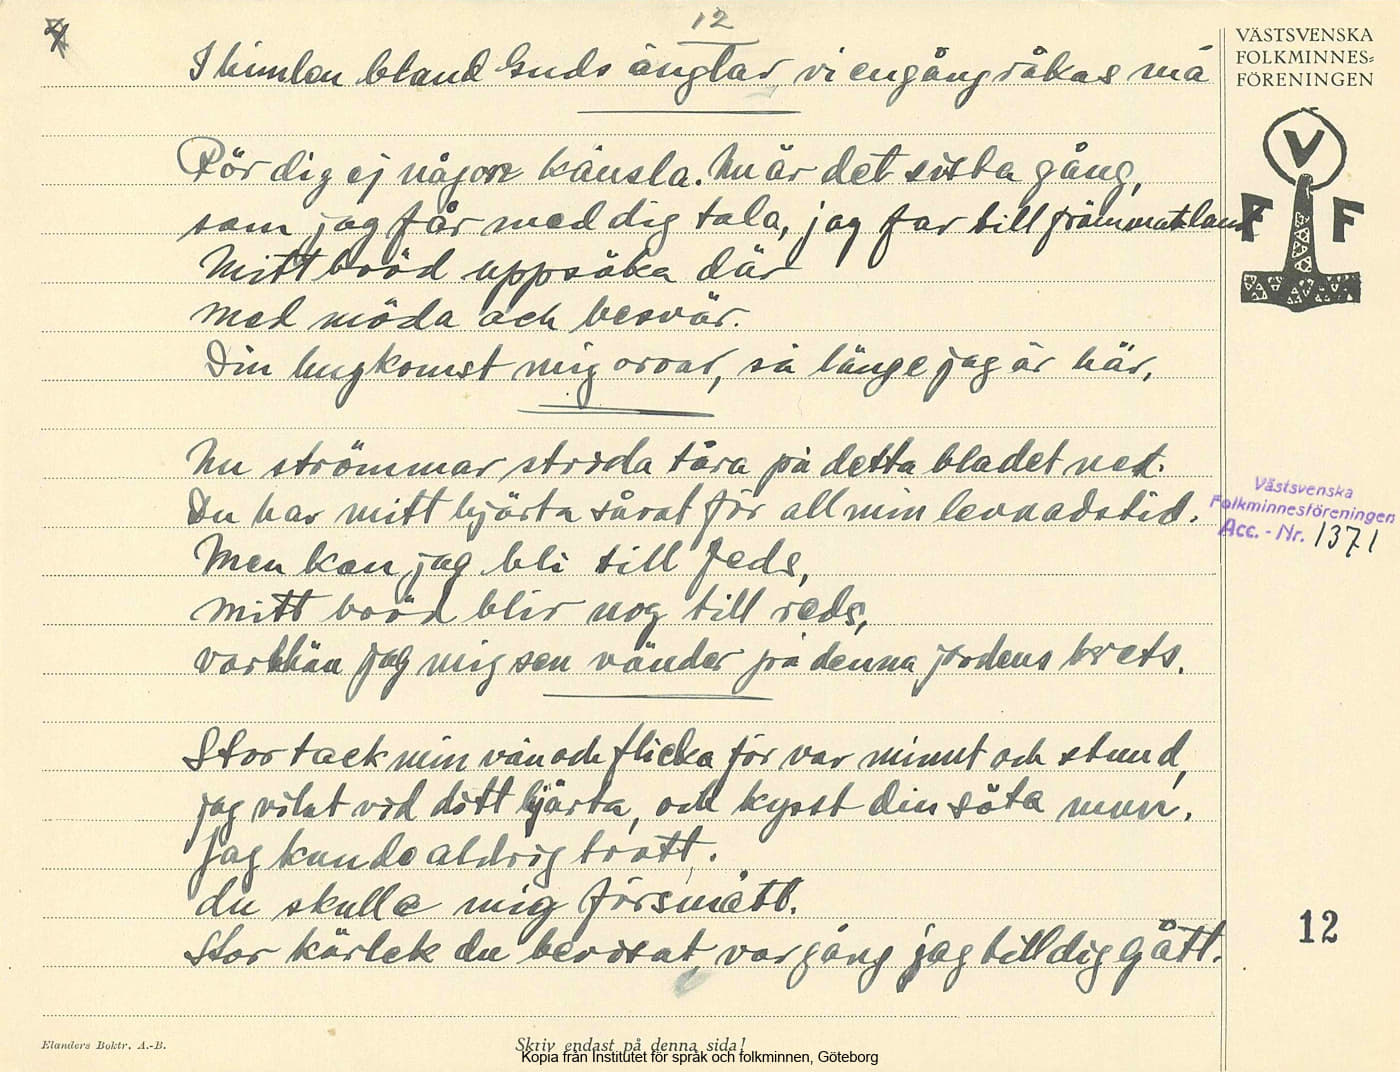 12
I himlen bland Guds änglar, vi engång råkas må
Rör dig ej någon känsla. Nu är det sista gång,
som jag får med dig tala, jag far till främmat land
Mitt bröd uppsöka där
med möda och besvär.
Din hugkomst mig oroar, så länge jag är här,
Nu strömmar strida tåra på detta bladet ned.
Du har mitt hjärta sårat för all min levnadstid.
Men kan jag bli till freds,
mitt bröd blir nog till reds,
varthän jag mig sen vänder på denna jordens krets.
Stor tack min vän och flicka för var minut och stund,
jag vilat vid ditt hjärta, och kysst din söta mun.
Jag kunde aldrig trott,
du skulle mig försmått.
Stor kärlek du bevisat, var gång jag till dig gått.
VÄSTSVENSKA
FOLKMINNES=
FÖRENINGEN
V
F F
Västsvenska
Folkminnesföreningen
Acc. - Nr. 1371
12
Elanders Boktr. A.-B.
Skriv endast på denna sida!
Kopia från Institutet för språk och folkminnen, Göteborg